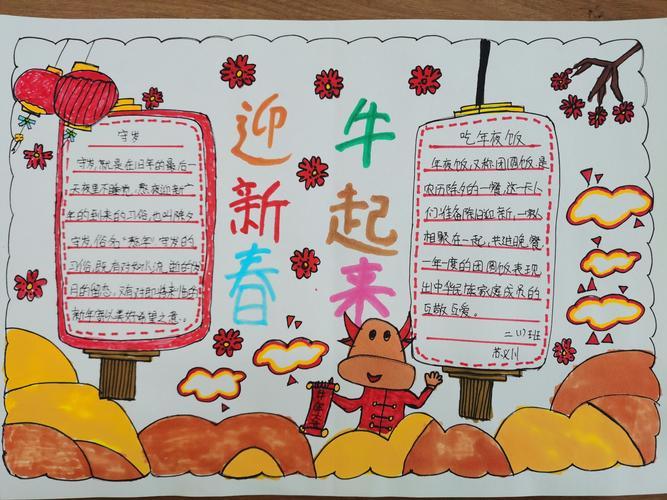 迎新春
牛起来
守岁
守岁,就是在旧年的最后一
天夜里不睡觉,熬夜迎新
年的到来的习俗,也叫除夕
守岁,俗名"熬年"守岁的
习俗,既有对如水流逝的岁
月的,又有对即将来临的
新年寄以美好希望之意。
吃年夜饭
年夜饭,又称团圆饭,是
农历除夕的一餐,这一天人
们准备除旧迎新,一家人
相聚在一起,共进晚餐
一年一度的团圆饭表现
出中华民族家庭成员的
互敬互爱。
二(1)班
苏义川